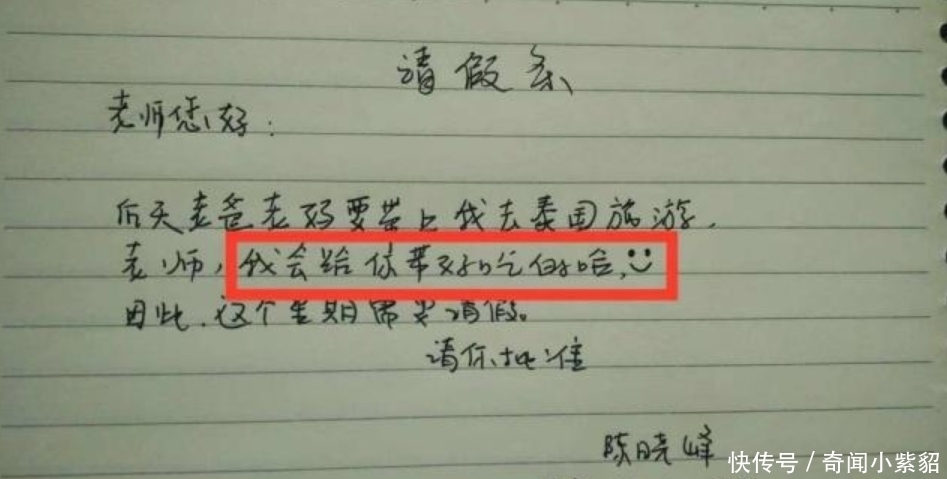 请假条
老师您好：
后天老爸老妈要带上我去泰国旅游.
老师，我会给你带好吃的哈，
因此.这个星期需要请假。
请你批准
陈晓峰
快传号 / 奇闻小紫貂